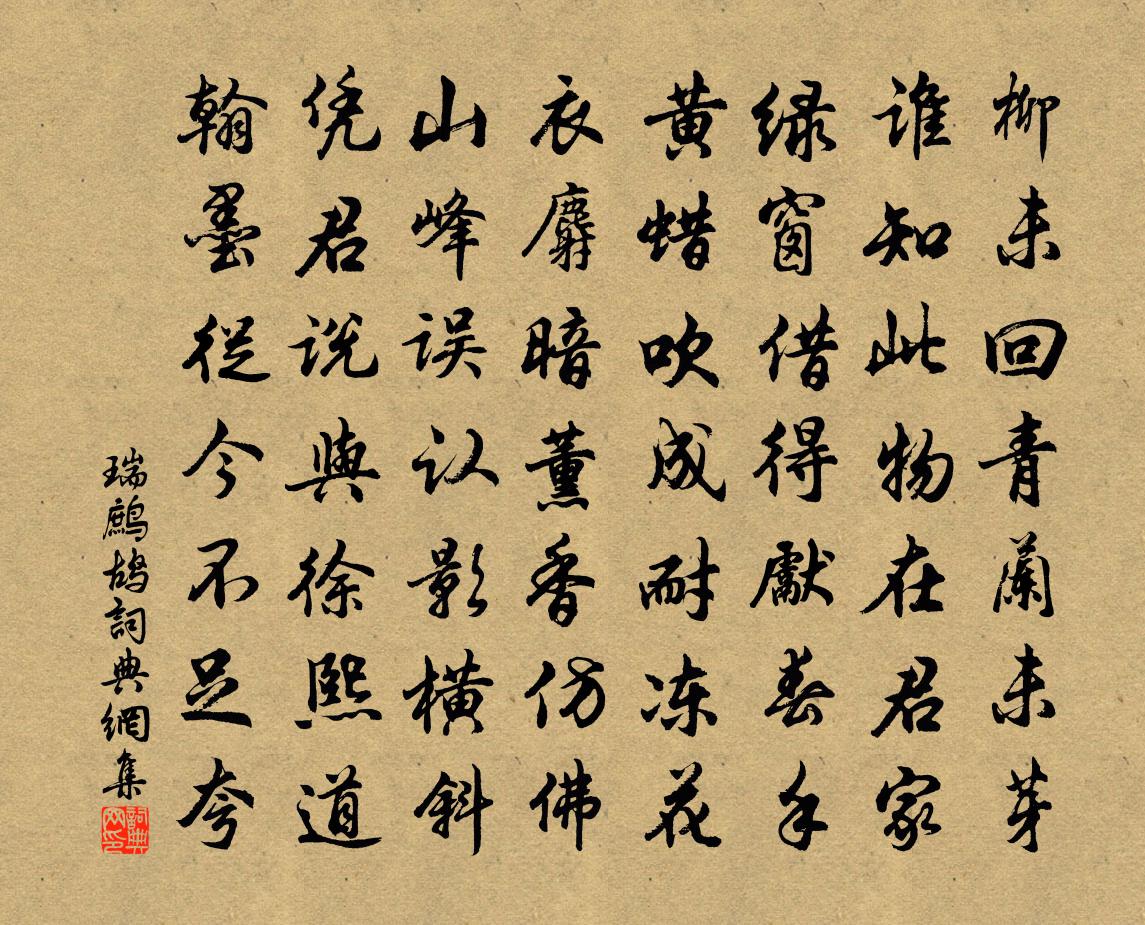 柳未回青蘭未芽
谁知此物在君家
绿窗借得獻春手
黄蜡吹成耐冻花
衣麝暗薰香仿佛
山峰误认影横斜
凭君说與徐熙道
翰墨従今不足夸
瑞鷓鸪詞典網集
詞典網印